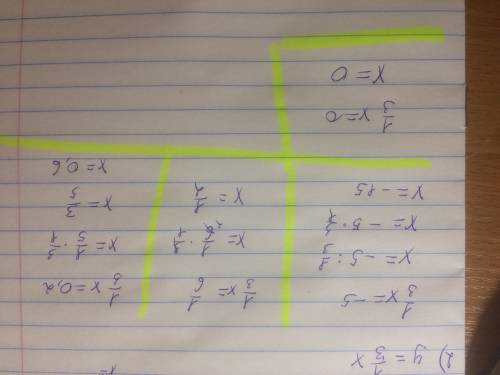 2) y = 1/3 x
1/3 x = -5
x = -5 : 1/3
x = -5 · 3/1
x = -15
1/3 x = 1/6
x = 1/6 · 3/1
x = 1/2
1/3 x = 0,2
x = 1/5 · 3/1
x = 3/5
x = 0,6
1/3 x = 0
x = 0